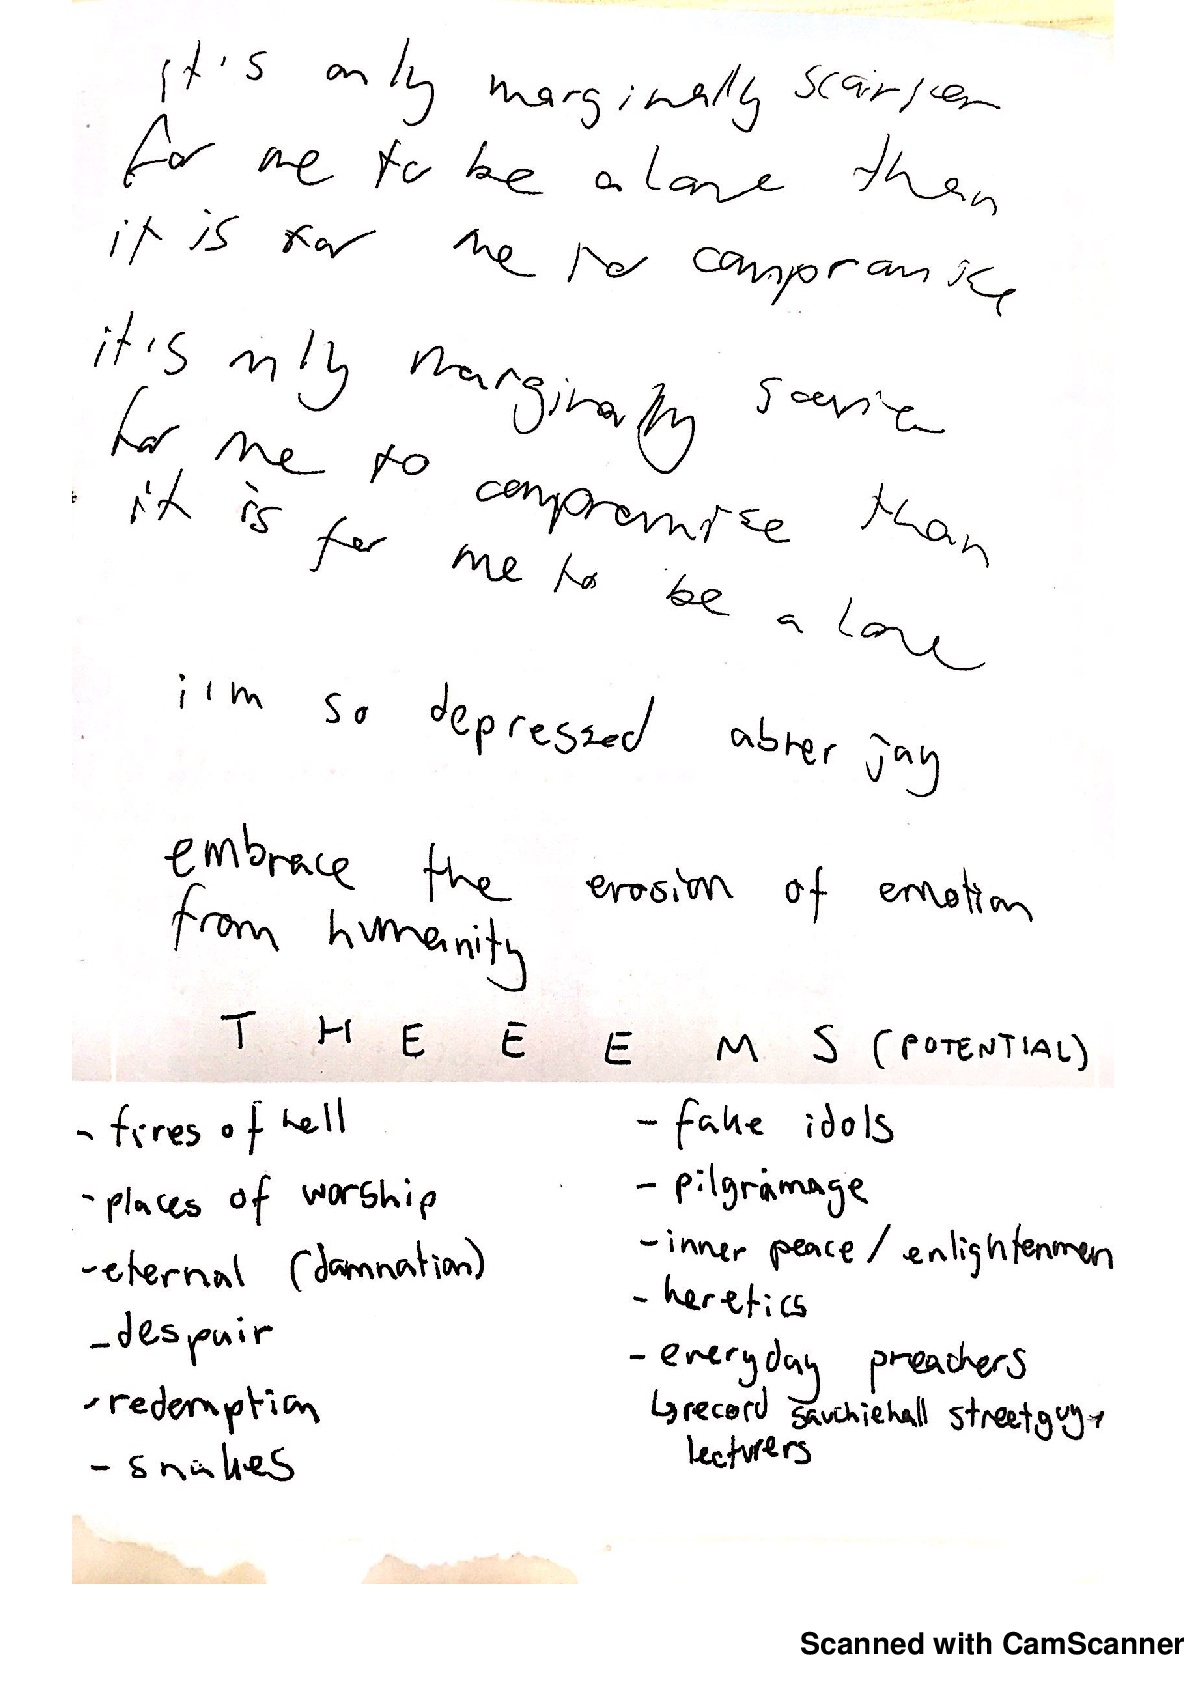 it's only marginally
for me to be alone than
it is for me to compromise
it's only marginally
for me to compromise than
it is for me to be alone
i'm so depressed jay
embrace the erosion of emotion
from humanity
T H E E E M S (POTENTIAL)
- fires of hell
- places of worship
- eternal (damnation)
- despair
- redemption
- snakes
- fake idols
- pilgramage
- inner peace / enlightenmen
- heretics
- everyday preachers
↳ record sauchiehall street guy +
lecturers
Scanned with CamScanner